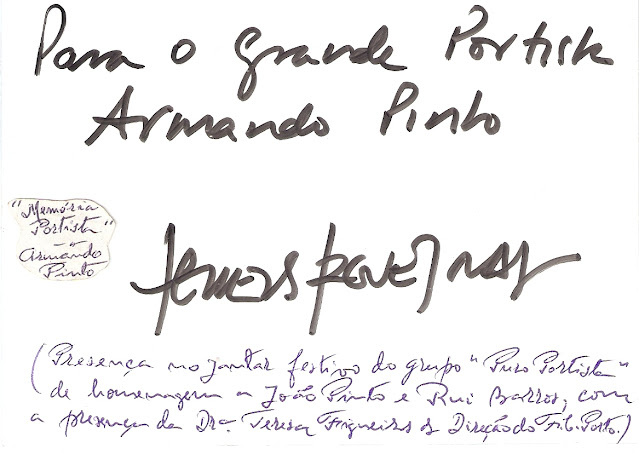 Para o grande Portista
Armando Pinto
"Memória
Portista"
-
Armando
Pinto
(Presença no jantar festivo do grupo "Puro Portista"
de homenagem a João Pinto e Rui Barros, com
a presença da Dra. Teresa Figueiras da Direção do F.C. Porto.)